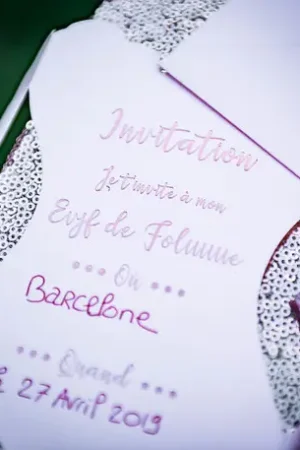 Invitation
Je t'invite à mon
Evjf de Foluuue
••• Où •••
Barcelone
••• Quand •••
27 Avril 2019